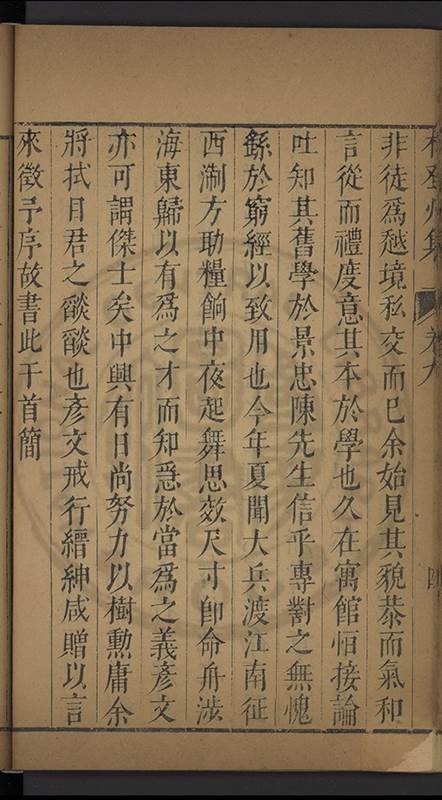 非徒爲越境私交而已余始見其貌恭而氣和
言從而禮度意其本於學也久在寓館怕接論
吐知其舊學於景忠陳先生信乎專對之無愧
繇於窮經以致用也今年夏聞大兵渡江南征
西淛方助糧餉中夜起舞思效尺寸卽命舟涉
海東歸以有爲之才而知急於當爲之義彥文
亦可謂傑士矣中興有日尚努力以樹勳庸余
將拭目君之燄燄也彥文戒行縉紳咸贈以言
來徵予序故書此于首簡